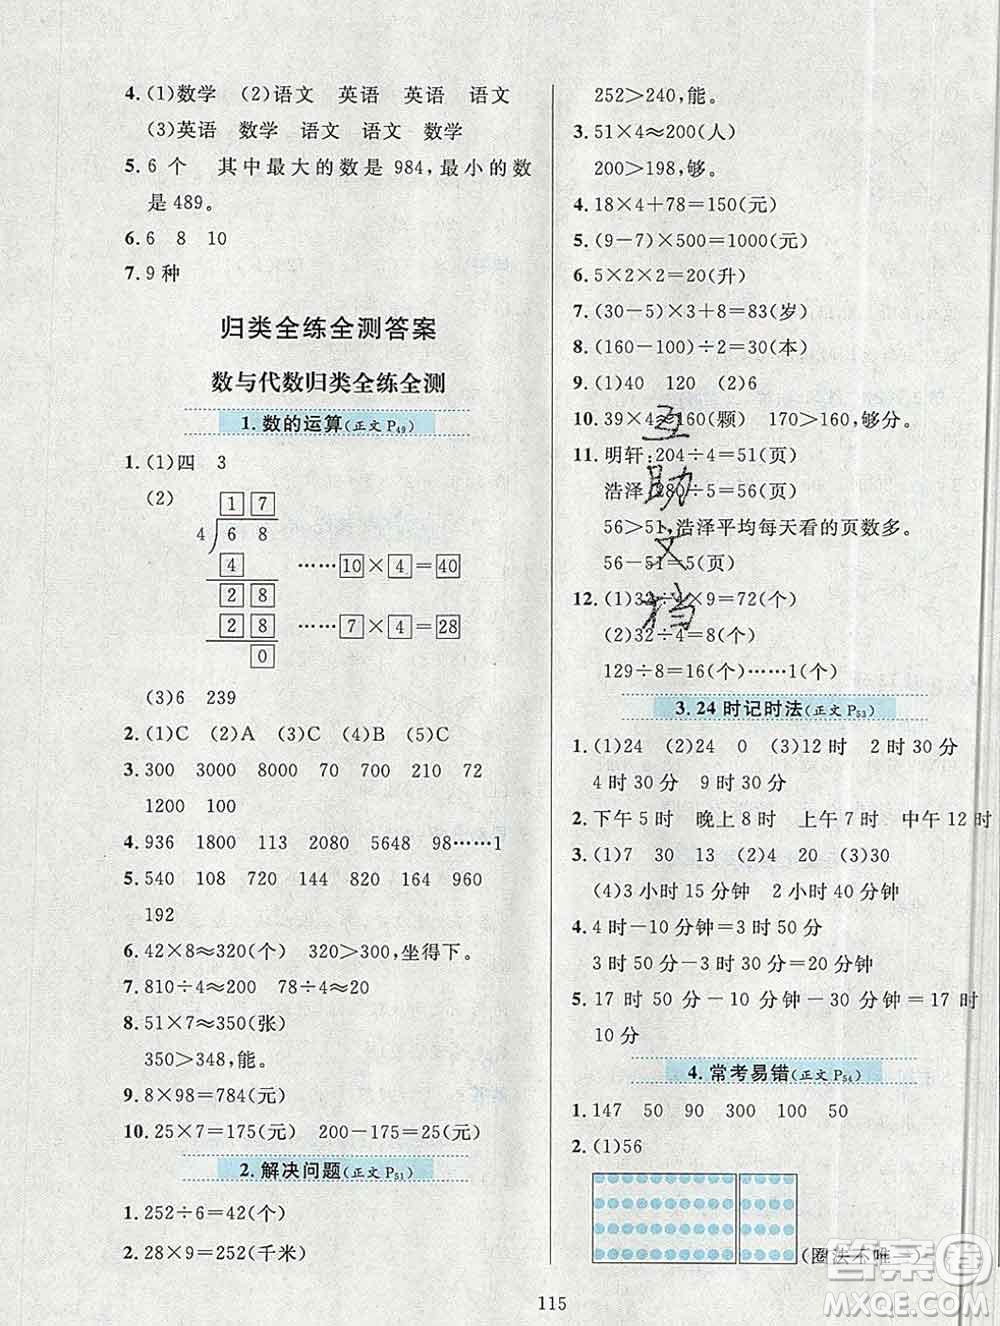 4. (1)数学 (2)语文 英语 英语 语文
(3)英语 数学 语文 语文 数学
5. 6 个 其中最大的数是 984,最小的数
是 489。
6. 6 8 10
7. 9 种
归类全练全测答案
数与代数归类全练全测
1. 数的运算(正文 P49)
1. (1)四 3
(2)
1 7
4 6 8
4 ……10×4=40
2 8
2 8 ……7×4=28
0
(3)6 239
2. (1)C (2)A (3)C (4)B (5)C
3. 300 3000 8000 70 20 420
1200 100
4. 936 1800 113 2080 5648 98……1
5. 540 108 720 160 164 960
192
6. 42×8≈320(个) 320>300,坐得下。
7. 810÷4≈200 78÷4≈20
8. 51×7≈350(张)
350>348,能。
9. 8×98≈800(千克)
10. 25×7=175(元) 200-175=25(元)
2. 解决问题(正文 P51)
1. 252÷6=42(个)
2. 28×9=252(千米)
252>240,能。
3. 51×4≈200(人)
200>198,够。
4. 18×4+78=150(元)
5. (9-7)×500=1000(元)
6. 5×2×2=20(升)
7. (30-5)×3+8=83(岁)
8. (160-100)÷2=30(本)
9. (1)40 120 (2)6
10. 39×4≈160(颗) 170>160,够分。
11. 明轩:204÷4=51(页)
浩泽:280÷5=56(页)
56>51,浩泽平均每天看的页数多。
56-51=5(页)
12. (1)32÷4×9=72(个)
(2)32÷4=8(个)
129÷8=16(个)……1(个)
互助文档
3. 24 时记时法(正文 P53)
1. (1)24 (2)24 0 (3)12 时 2 时 30 分
4 时 30 分 9 时 30 分
2. 下午 5 时 晚上 8 时 上午 7 时 中午 12 时
3. (1)7 30 13 (2)4 20 (3)30
(4)3 小时 15 分钟 2 小时 40 分钟
4. 4 时-10 分钟=3 时 50 分
3 时 50 分-20 分钟=3 时 30 分
5. 17 时 50 分-10 分钟-30 分钟=17 时
10 分
4. 常考易错(正文 P54)
1. 147 50 90 300 100 50
2. (1)56
(圈法不唯一
答案圈
MXQE.COM
115